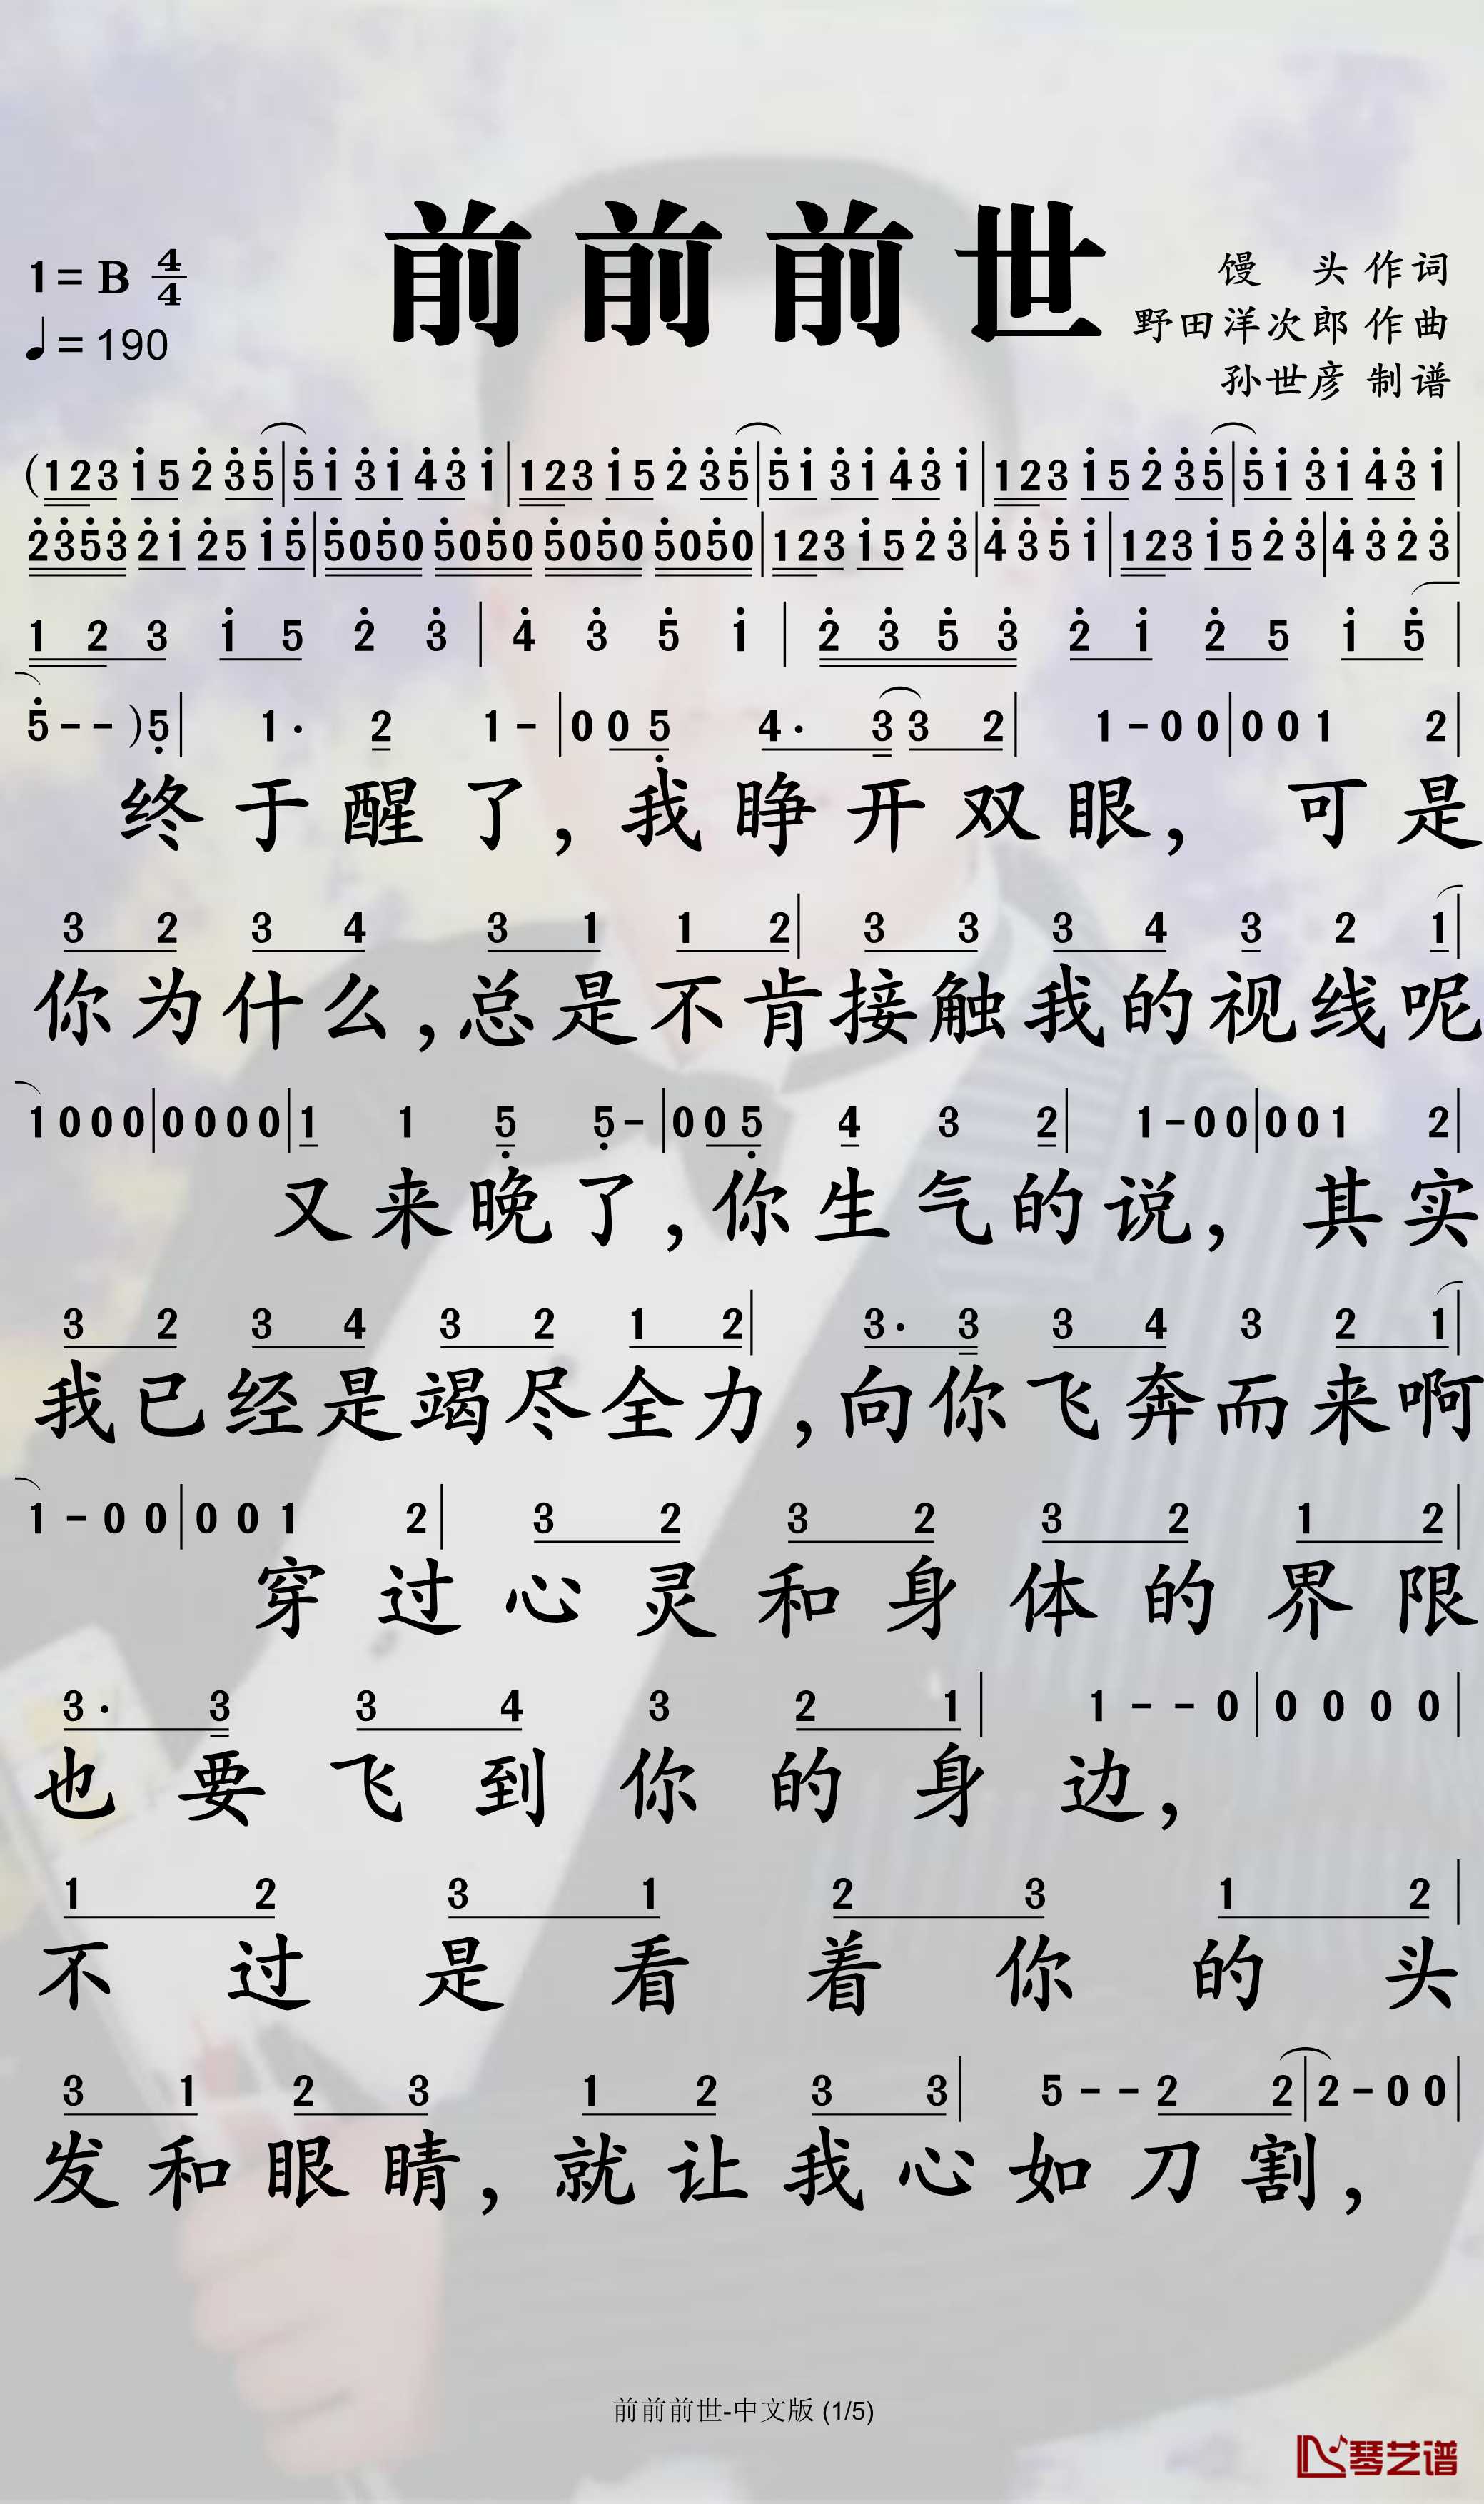 前前前世
1=B 4/4
♩=190
馒 头 作词
野田洋次郎 作曲
孙世彦 制谱
(123 i5 2̇ 3̇5̇|5̇i 3̇i 4̇3̇ i|123 i5 2̇ 3̇5̇|5̇i 3̇i 4̇3̇ i|123 i5 2̇ 3̇5̇|5̇i 3̇i 4̇3̇ i|
2̇3̇5̇3̇ 2̇i 2̇5 i5̇|5̇05̇0 5̇05̇0 5̇05̇0 5̇05̇0|123 i5 2̇ 3̇|4̇ 3̇ 5̇ i|123 i5 2̇ 3̇|4̇ 3̇ 2̇ 3̇|
1 2 3 i 5 2̇ 3̇|4̇ 3̇ 5̇ i|2̇ 3̇ 5̇ 3̇ 2̇ i 2̇ 5 i 5̇|
5̇ - - )5̣| 1· 2 1 -|0 0 5̣ 4· 3 3 2| 1 - 0 0|0 0 1 2|
终于醒了,我睁开双眼,可是
3 2 3 4 3 1 1 2|3 3 3 4 3 2 1|
你为什么,总是不肯接触我的视线呢
1 0 0 0|0 0 0 0|1 1 5̣ 5̣ -|0 0 5̣ 4 3 2| 1 - 0 0|0 0 1 2|
又来晚了,你生气的说,其实
3 2 3 4 3 2 1 2| 3· 3 3 4 3 2 1|
我已经是竭尽全力,向你飞奔而来啊
1 - 0 0|0 0 1 2| 3 2 3 2 3 2 1 2|
穿过心灵和身体的界限
3· 3 3 4 3 2 1| 1 - - 0|0 0 0 0|
也要飞到你的身边,
1 2 3 1 2 3 1 2|
不过是看着你的头
3 1 2 3 1 2 3 3| 5 - - 2 2|2 - 0 0|
发和眼睛,就让我心如刀割,
前前前世-中文版 (1/5)
琴艺谱